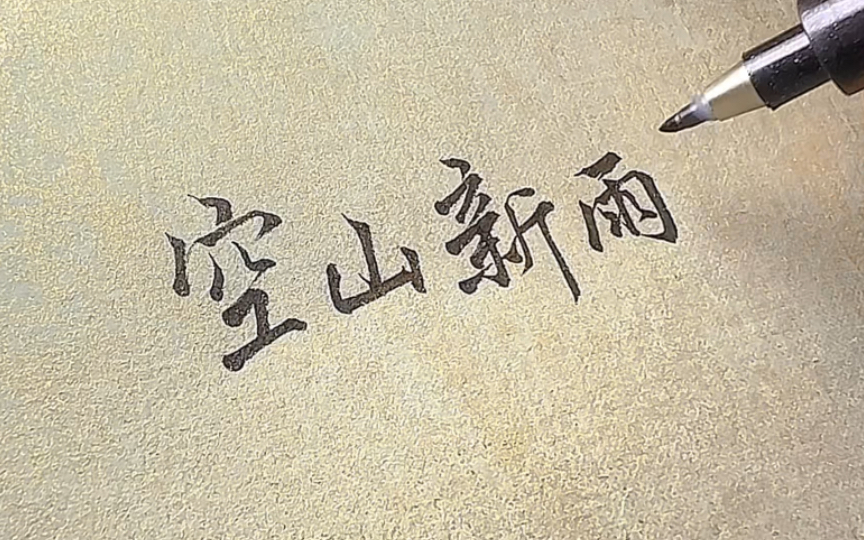 空山新雨